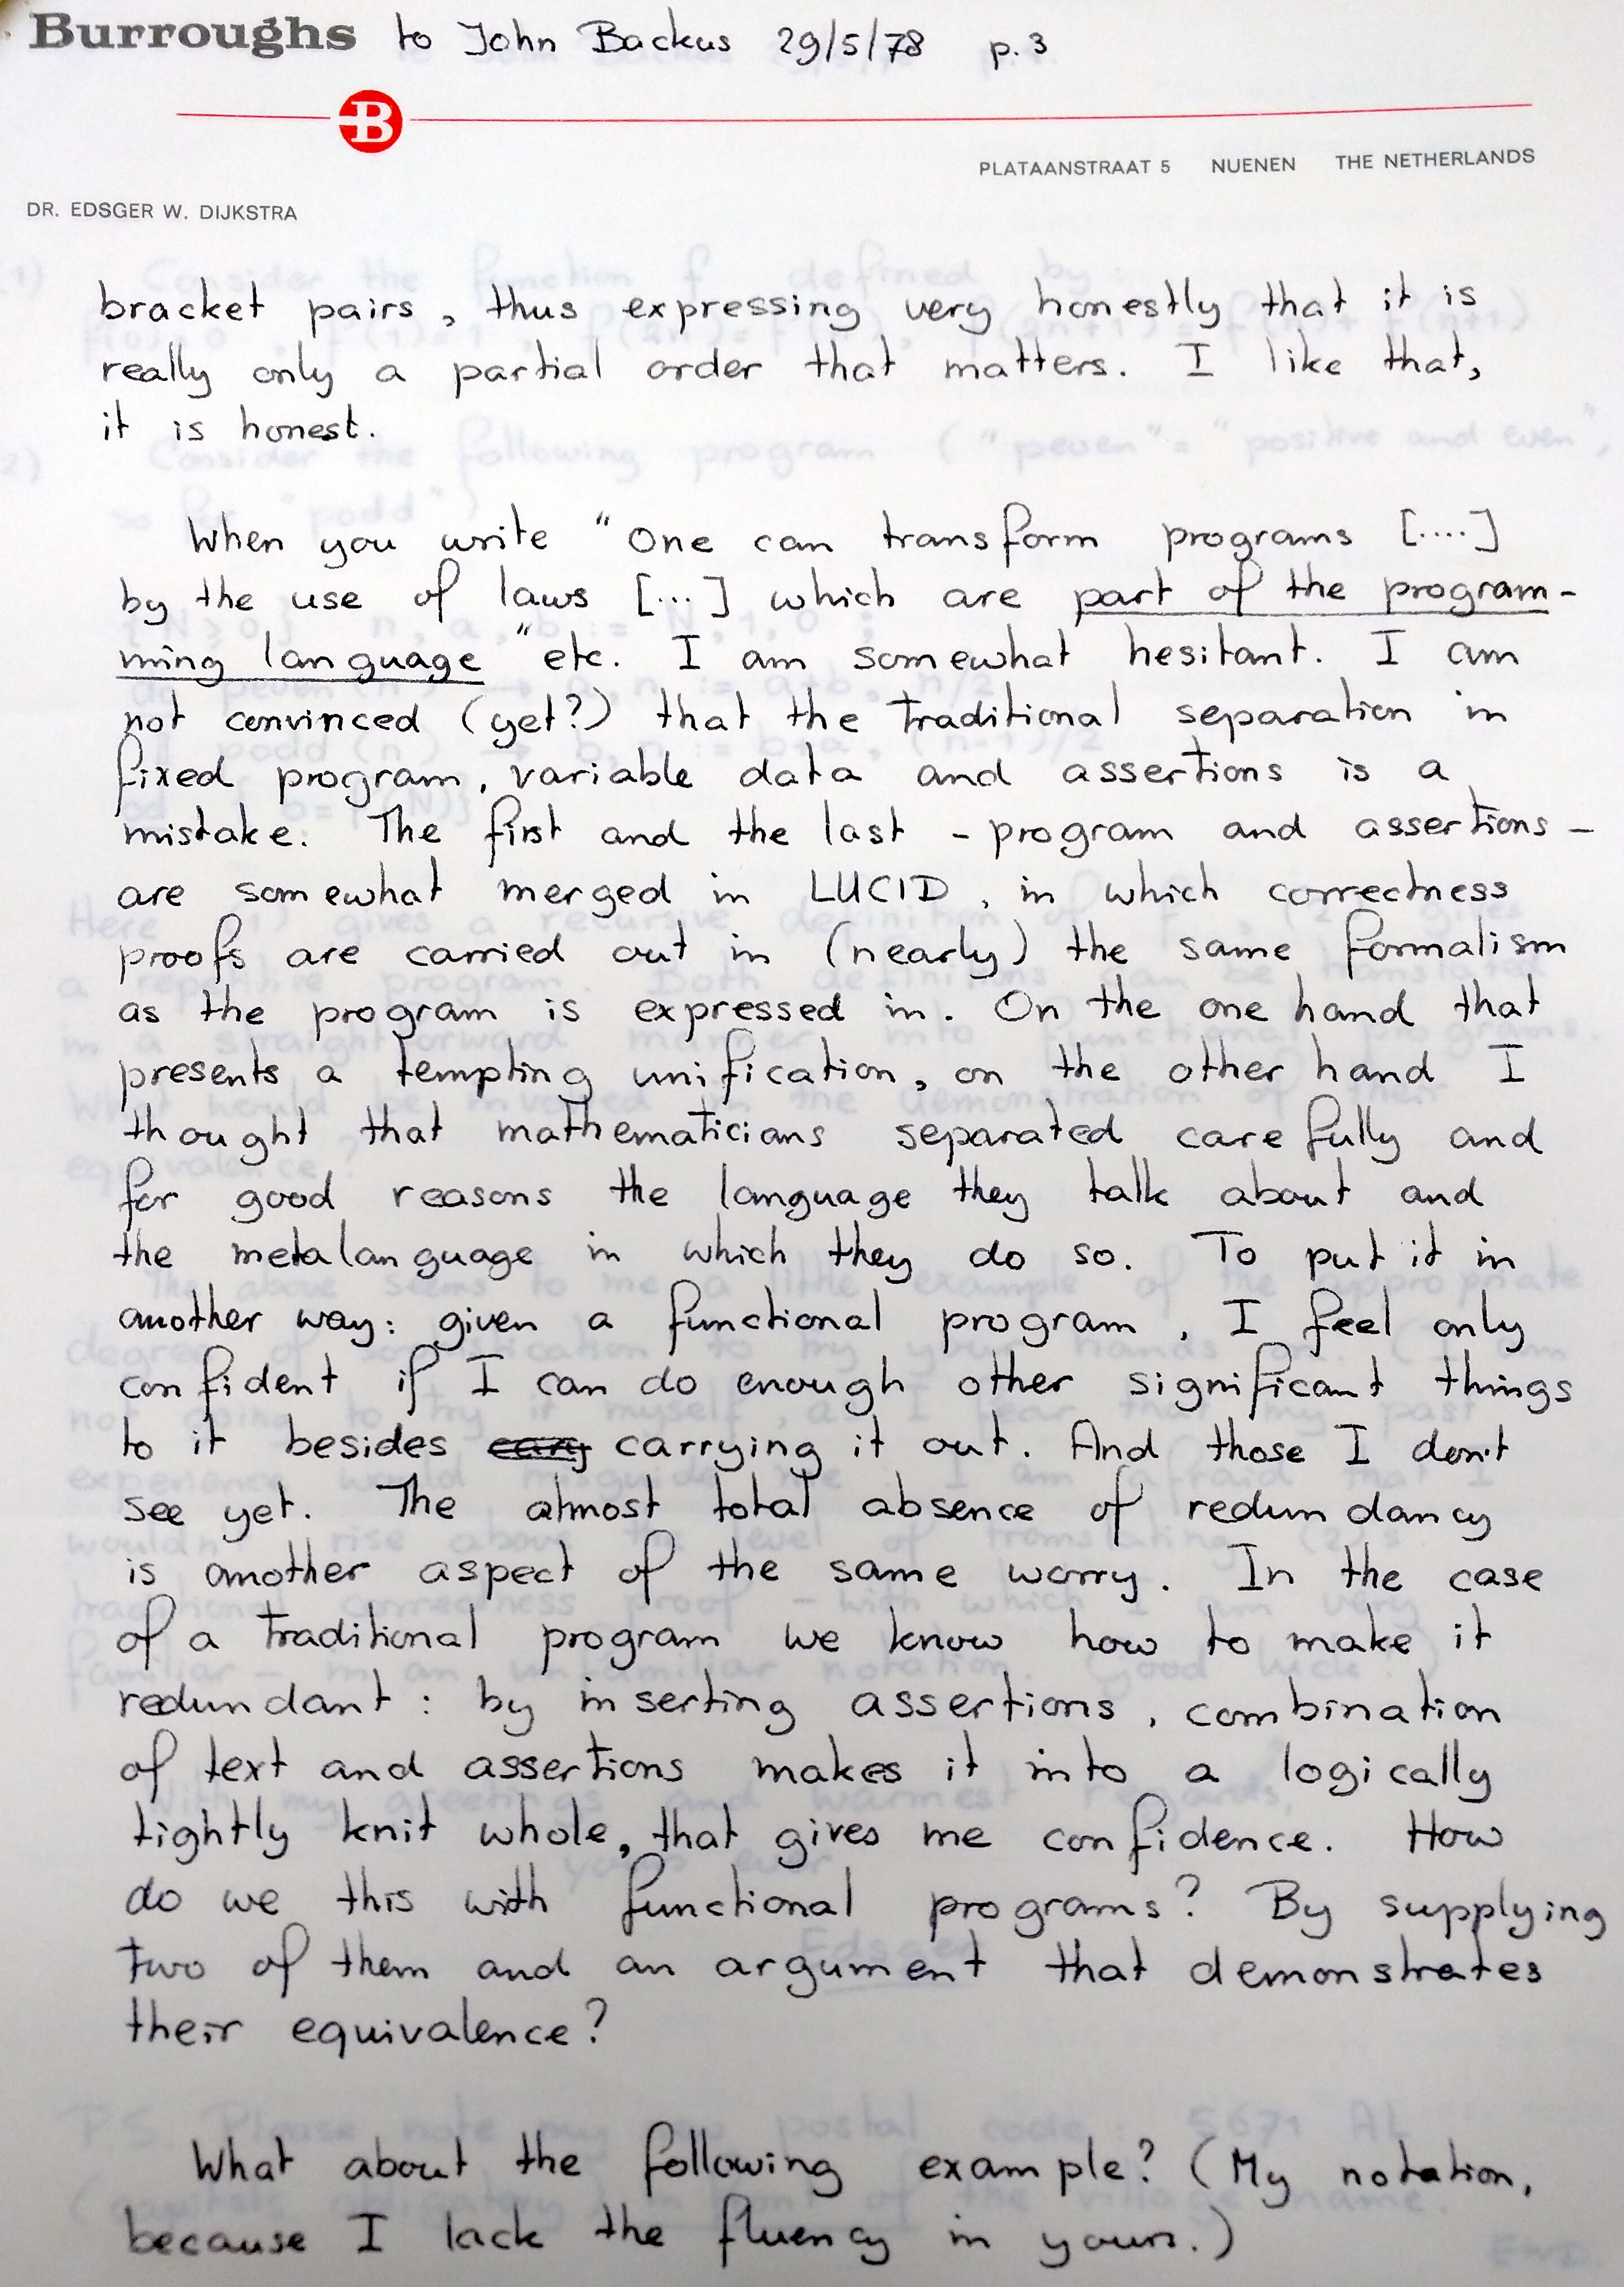 Burroughs to John Backus 29/5/78 p.3
B
PLATAANSTRAAT 5 NUENEN THE NETHERLANDS
DR. EDSGER W. DIJKSTRA
bracket pairs, thus expressing very honestly that it is
really only a partial order that matters. I like that,
it is honest.
When you write "One can transform programs [....]
by the use of laws [...] which are part of the program-
ming language" etc. I am somewhat hesitant. I am
not convinced (yet?) that the traditional separation in
fixed program, variable data and assertions is a
mistake. The first and the last - program and assertions -
are somewhat merged in LUCID, in which correctness
proofs are carried out in (nearly) the same formalism
as the program is expressed in. On the one hand that
presents a tempting unification, on the other hand I
thought that mathematicians separated carefully and
for good reasons the language they talk about and
the metalanguage in which they do so. To put it in
another way: given a functional program, I feel only
confident if I can do enough other significant things
to it besides carrying it out. And those I don't
see yet. The almost total absence of redundancy
is another aspect of the same worry. In the case
of a traditional program we know how to make it
redundant: by inserting assertions, combination
of text and assertions makes it into a logically
tightly knit whole, that gives me confidence. How
do we this with functional programs? By supplying
two of them and an argument that demonstrates
their equivalence?
What about the following example? (My notation,
because I lack the fluency in yours.)